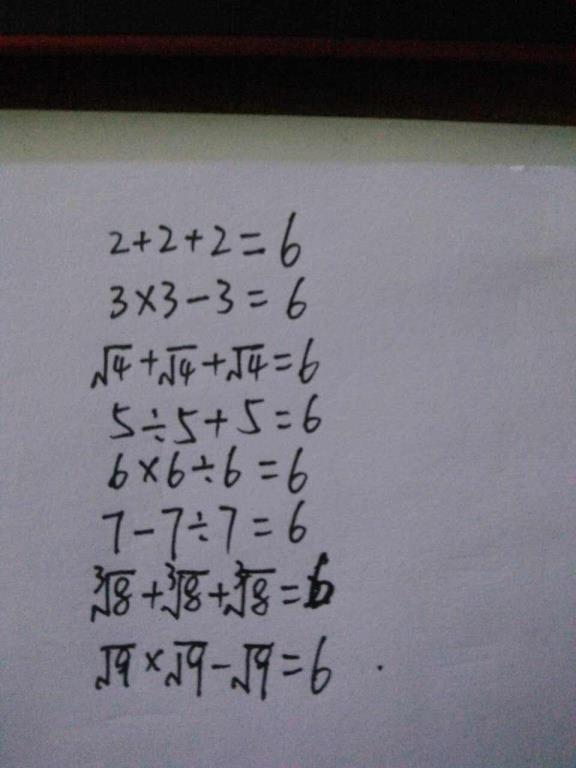 2+2+2=6
3×3-3=6
√4+√4+√4=6
5÷5+5=6
6×6÷6=6
7-7÷7=6
∛8+∛8+∛8=6
√9×√9-√9=6